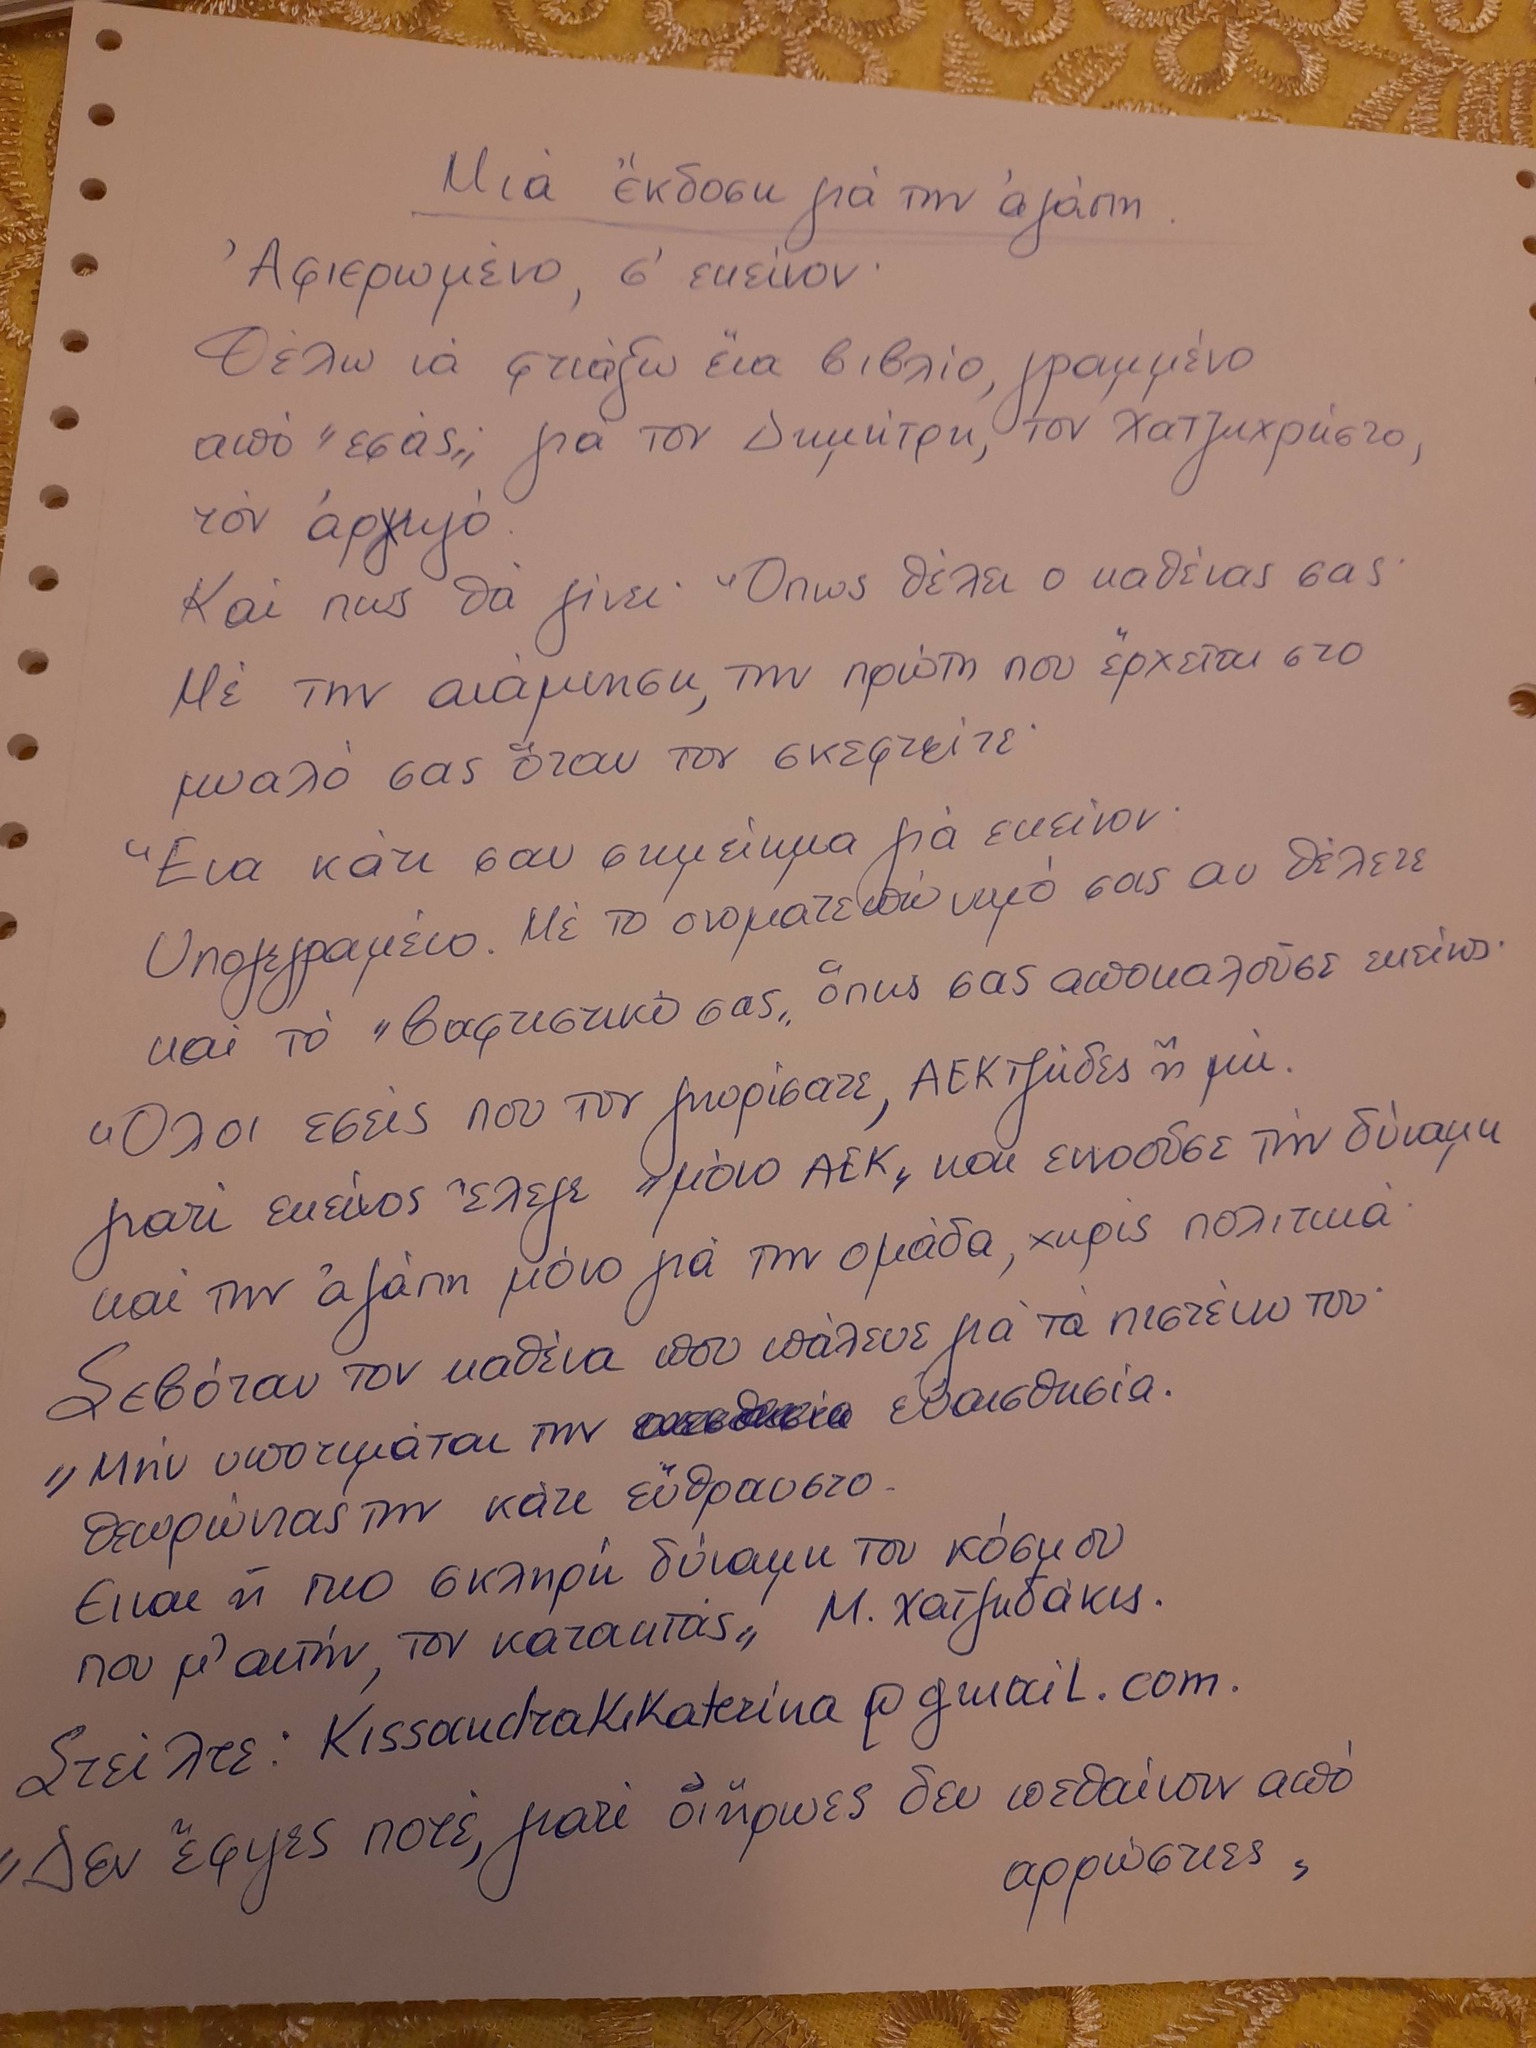 Μιά ἔκδοση γιά την ἀγάπη.
Ἀφιερωμένο, σ' εκείνον.
Θέλω νά φτιάξω ἕνα βιβλίο, γραμμένο
από "εσάς" γιά τον Δημήτρη, τον Χατζηχρήστο,
τόν ἀρχηγό.
Καί πως θά γίνει. Ὅπως θέλει ο καθένας σας.
Μέ την ανάμνηση, την πρώτη που ἔρχεται στο
μυαλό σας ὅταν τον σκεφτείτε.
Ἕνα κάτι σαν σημείωμα γιά εκείνον.
Υπογεγραμένο. Μέ το ονοματεπώνυμό σας αν θέλετε
καί τό "βαφτιστικό σας" ὅπως σας αποκαλοῦσε εκείνος.
Ὅλοι εσείς που τον γνωρίσατε, ΑΕΚτζήδες ἤ μή.
γιατί εκείνος ἔλεγε "μόνο ΑΕΚ" και εννοοῦσε τήν δύναμη
καί την ἀγάπη μόνο γιά την ομάδα, χωρίς πολιτικά.
Σεβόταν τον καθένα που πάλευε γιά τά πιστεύω του.
"Μήν υποτιμάται την εὐαισθησία.
Θεωρώντας την κάτι εὔθραυστο.
Ειναι ἡ πιο σκληρή δύναμη του κόσμου
που μ' αυτήν, τον κατακτάς" Μ. Χατζηδάκις.
Στείλτε: KissandrakiKaterina@gmail.com.
"Δεν ἔφυγες ποτέ, γιατί οἱ ἥρωες δεν πεθαίνουν από
αρρώστιες"